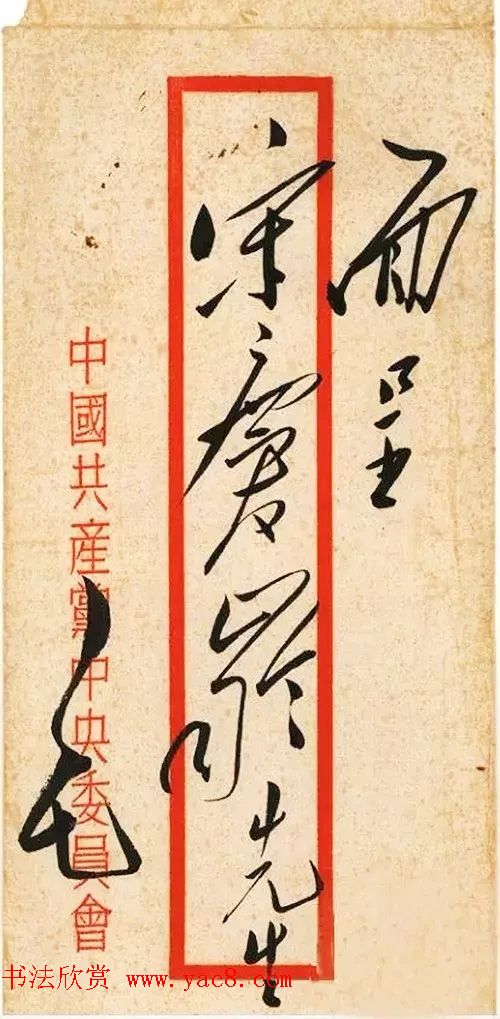 面呈
宋慶齡先生
中國共産黨中央委員會
毛
书法欣赏 www.yac8.com